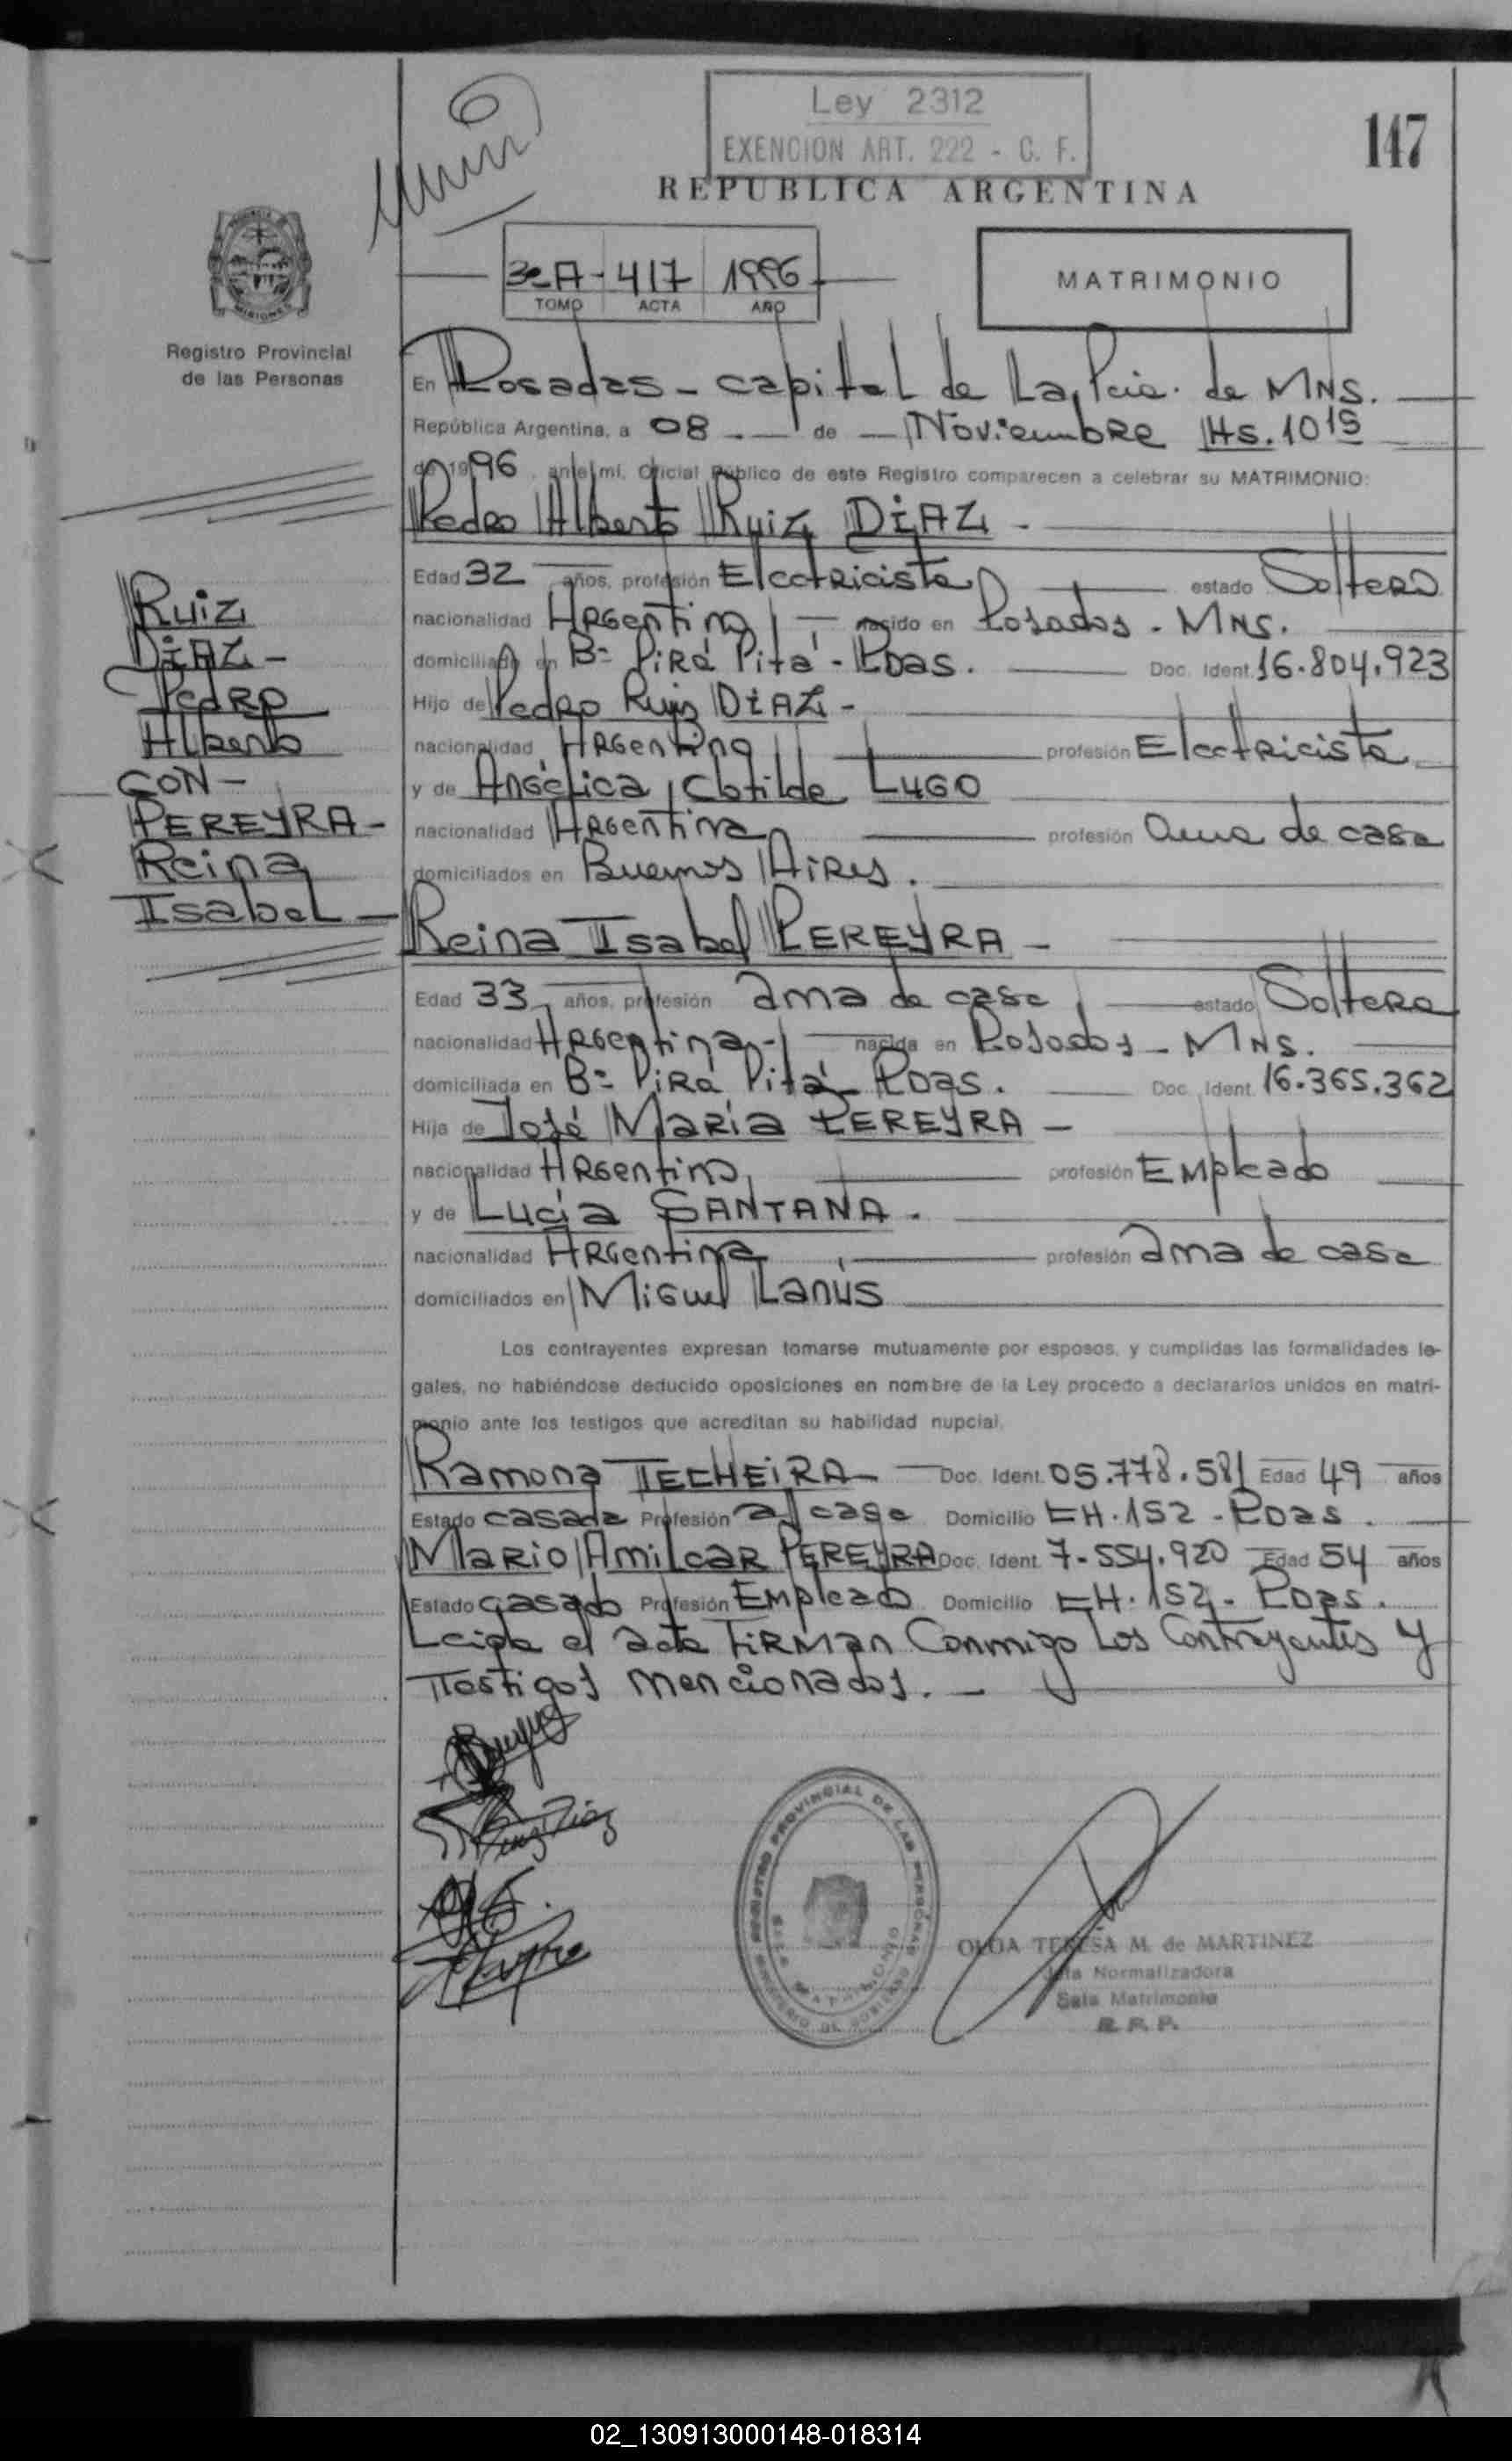 Ley 2312
EXENCION ART. 222 - C. F.
147
REPUBLICA ARGENTINA
3º A - 417 1996
TOMO ACTA AÑO
MATRIMONIO
MISIONES
Registro Provincial
de las Personas
En Posadas - capital de La Pcia. de MNS.
República Argentina, a 08 de Noviembre Hs. 10 15
de 1996, ante mí, Oficial Público de este Registro comparecen a celebrar su MATRIMONIO:
Pedro Alberto Ruiz DIAZ -
Edad 32 años, profesión Electricista estado Soltero
nacionalidad Argentino nacido en Posadas - MNS.
domiciliado en Bº Pirá Pitá - Pdas. Doc. Ident. 16.804.923
Hijo de Pedro Ruiz DIAZ -
nacionalidad Argentina profesión Electricista
y de Angélica Clotilde LUGO
nacionalidad Argentina profesión ama de casa
domiciliados en Buenos Aires.
Ruiz
DIAZ -
Pedro
Alberto
CON -
PEREYRA -
Reina
Isabel -
Reina Isabel PEREYRA -
Edad 33 años, profesión ama de casa estado Soltera
nacionalidad Argentina - nacida en Posadas - MNS.
domiciliada en Bº Pirá Pitá Pdas. Doc. Ident. 16.365.362
Hija de José María PEREYRA -
nacionalidad Argentino profesión Empleado
y de Lucía SANTANA.
nacionalidad Argentina profesión ama de casa
domiciliados en Miguel Lanús
Los contrayentes expresan tomarse mutuamente por esposos, y cumplidas las formalidades le-
gales, no habiéndose deducido oposiciones en nombre de la Ley procedo a declararlos unidos en matri-
monio ante los testigos que acreditan su habilidad nupcial.
Ramona TECHEIRA - Doc. Ident. 05.778.581 Edad 49 años
Estado casada Profesión a/ casa Domicilio CH. 152 - Pdas.
Mario Amilcar PEREYRA Doc. Ident. 7.554.920 Edad 54 años
Estado casado Profesión Empleado Domicilio CH. 152 - Pdas.
Leida el acta firman conmigo los contrayentes y
testigos mencionados. -
Ruiz Diaz
REGISTRO PROVINCIAL DE LAS PERSONAS
MINISTERIO DE GOBIERNO
SALA MATRIMONIO
OLGA TERESA M. de MARTINEZ
Jefa Normalizadora
Sala Matrimonio
R. P. P.
02_130913000148-018314